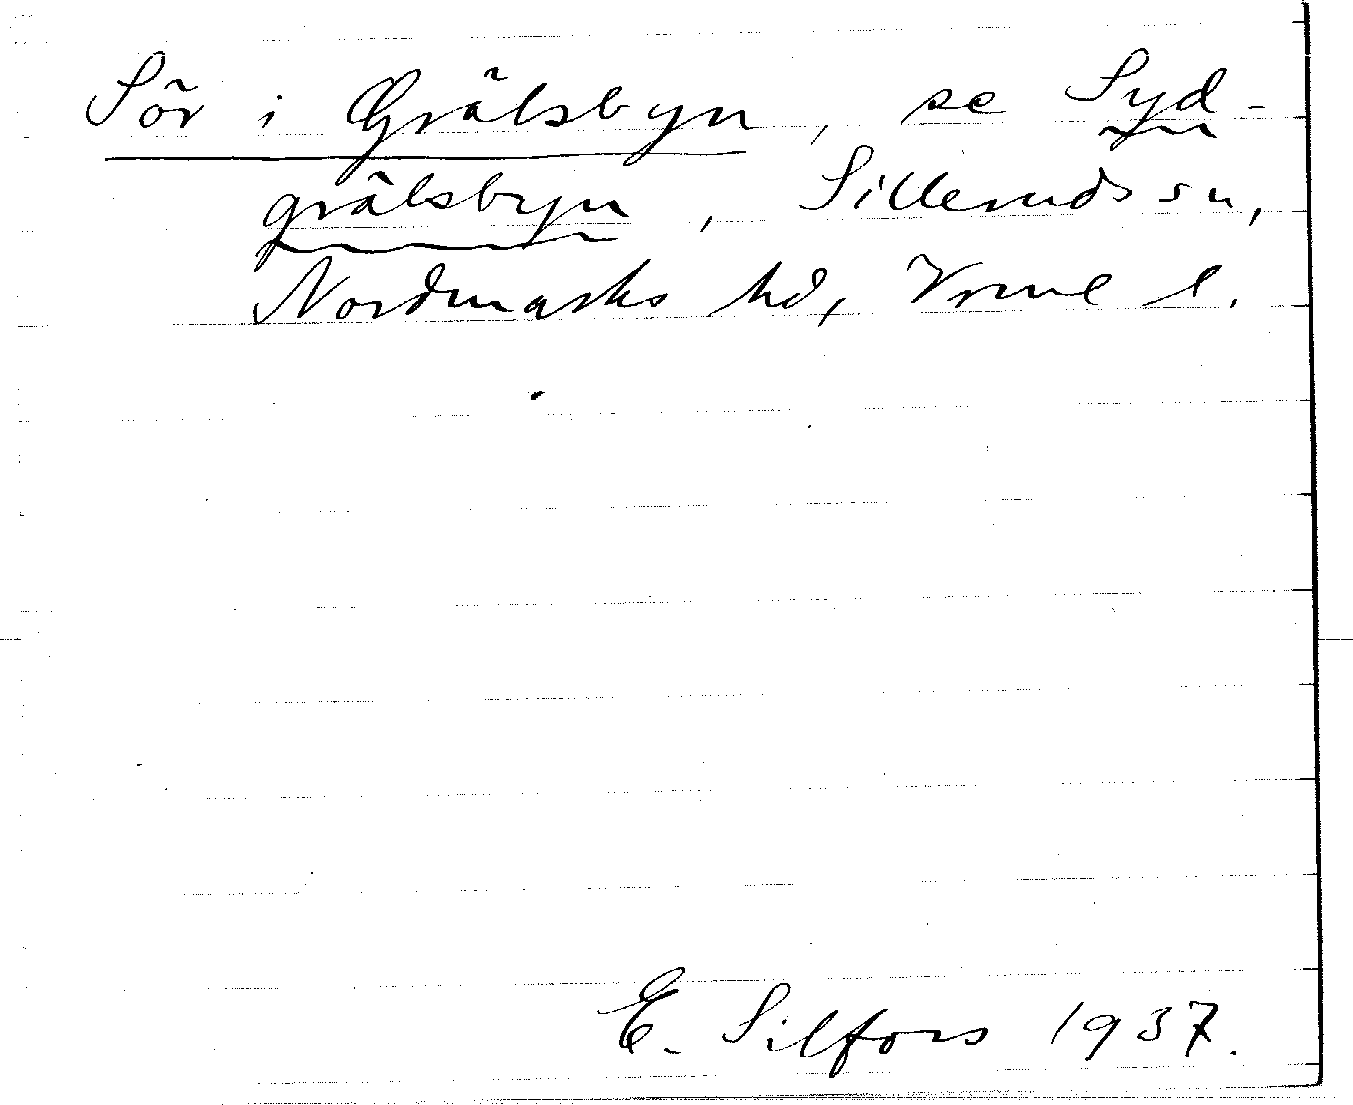 Sör i Grälsbyn, se Syd-
grälsbyn, Silleruds sn,
Nordmarks hd, Vrml l.
E. Silfors 1937.